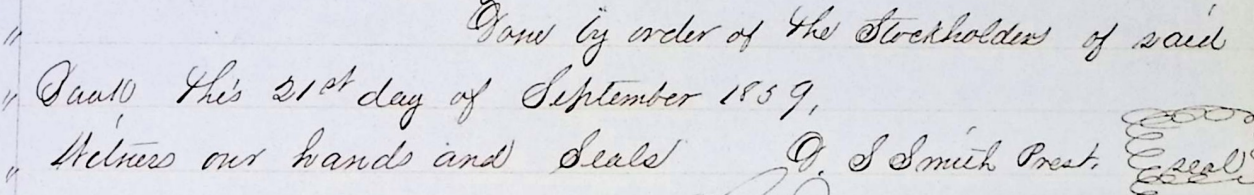 " Done by order of the Stockholders of said
" Bank this 21st day of September 1859,
" Witness our hands and Seals D. S Smith Prest. seal